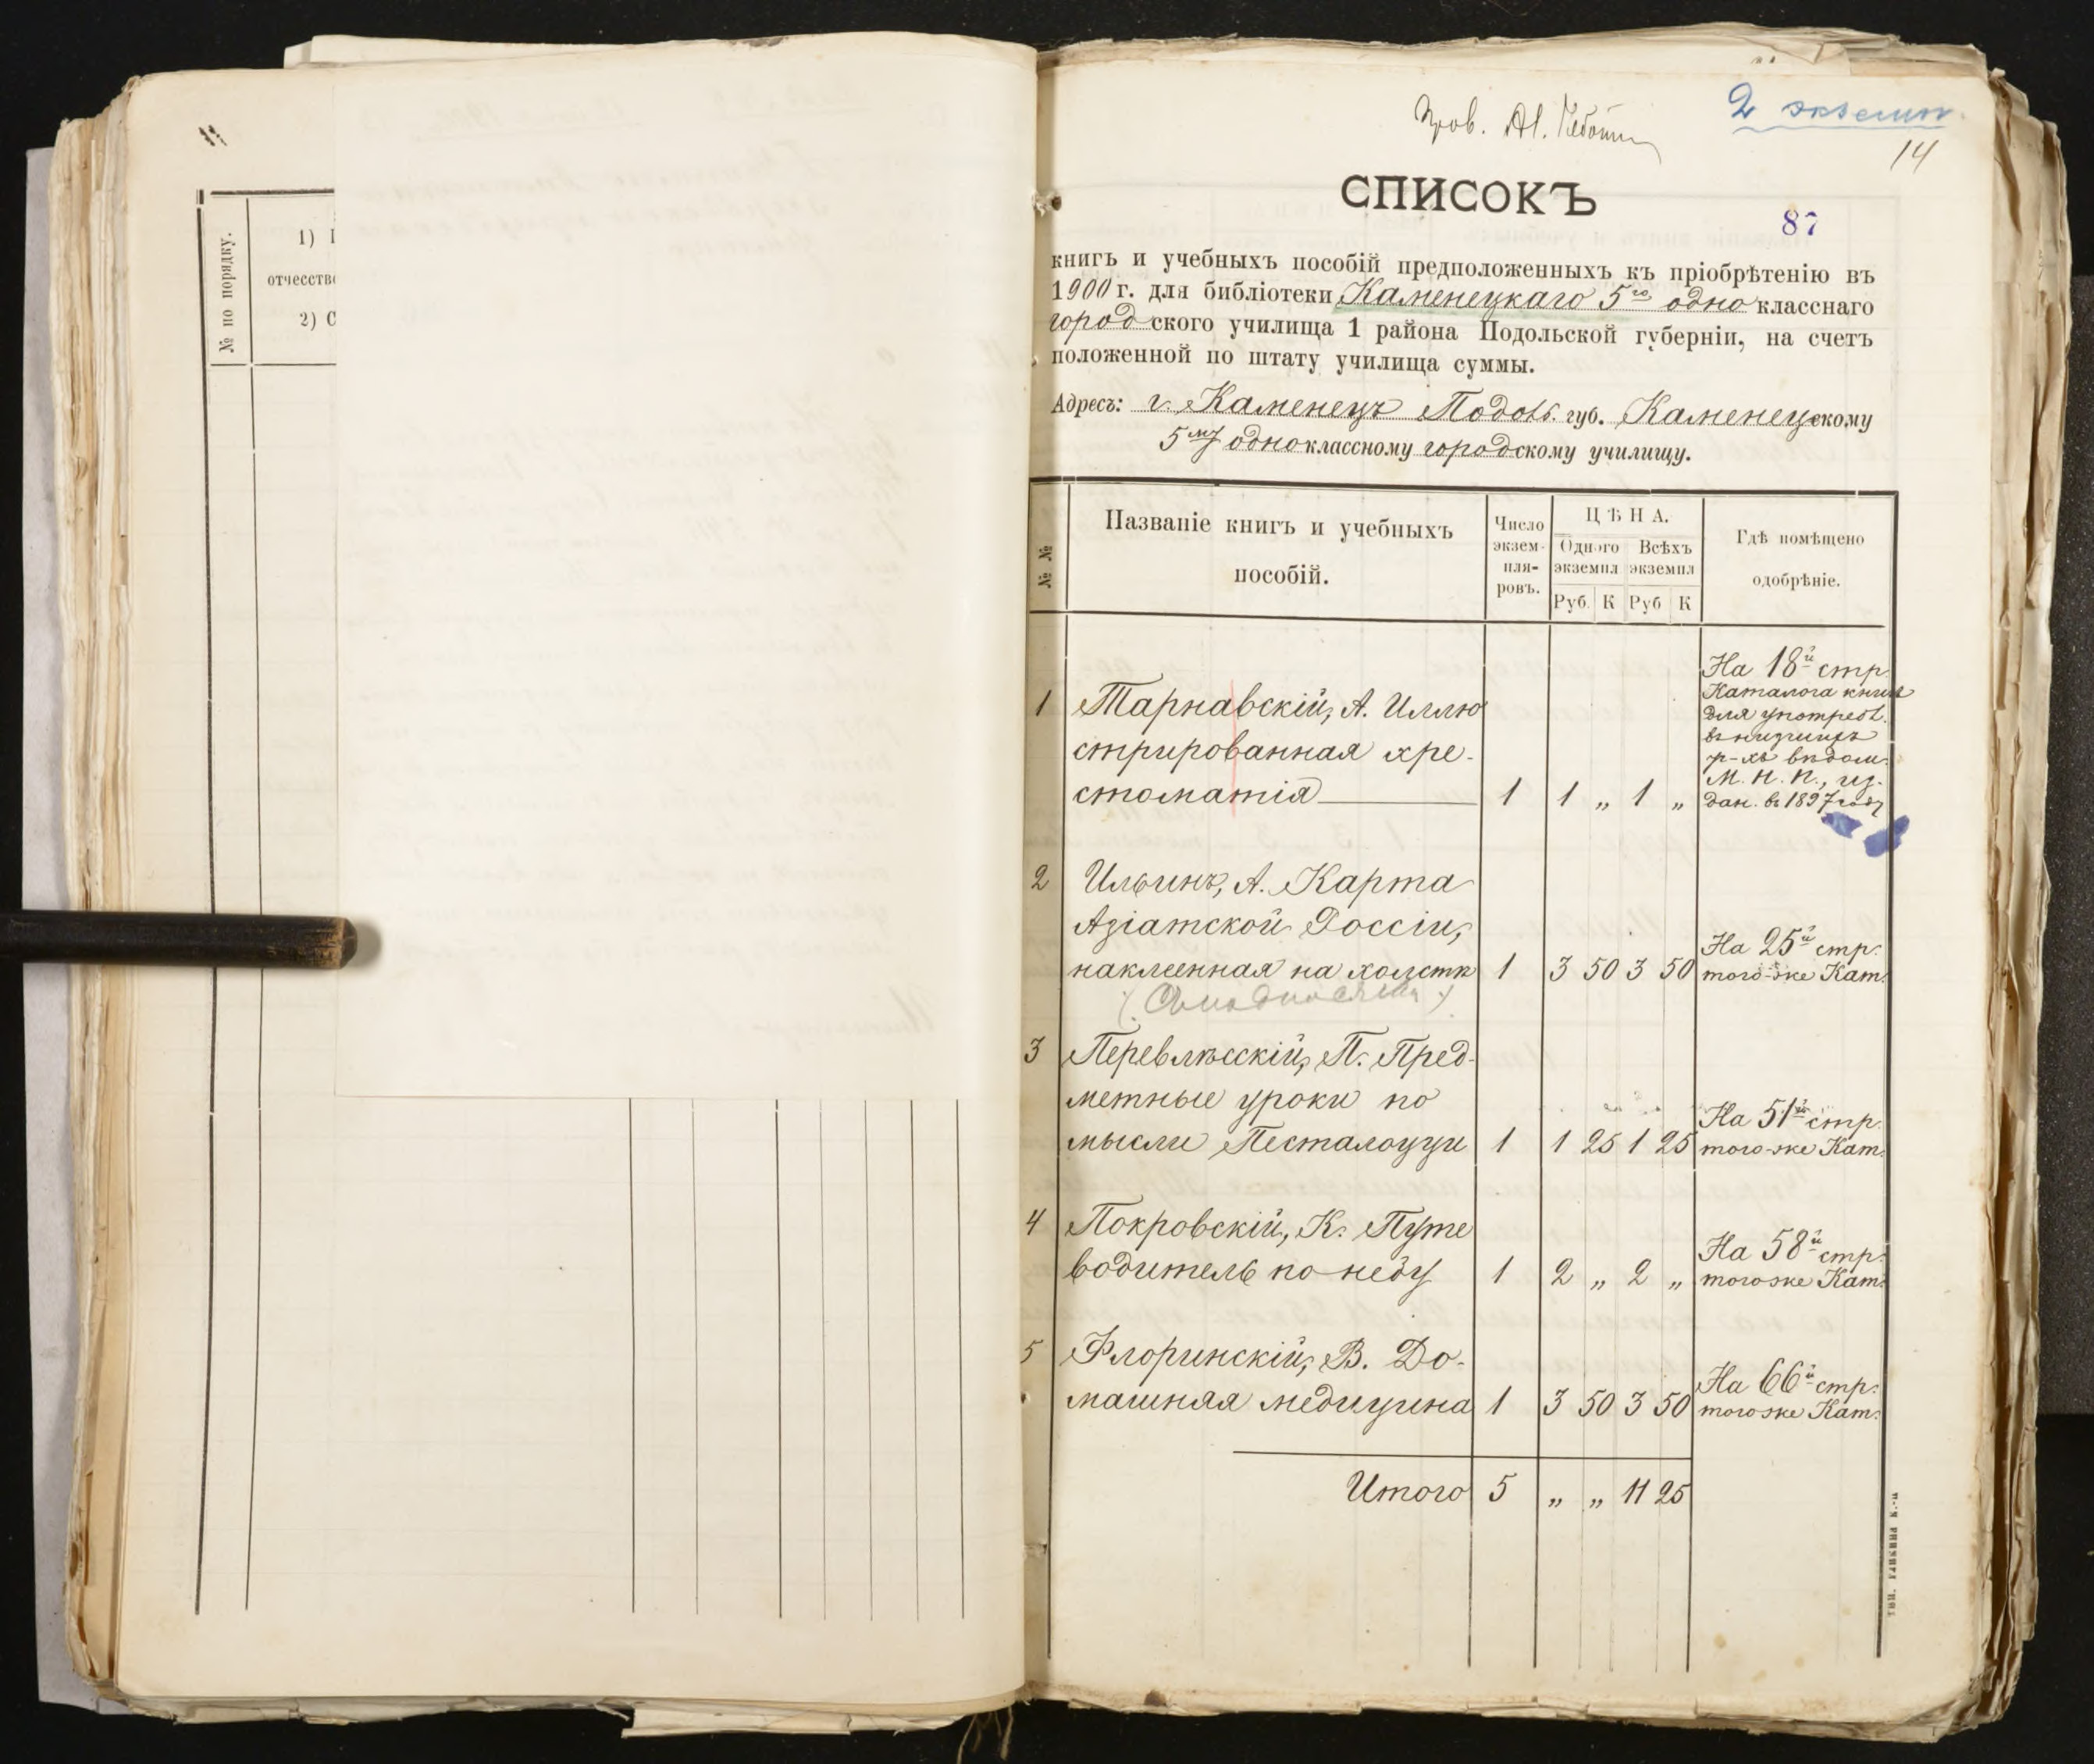 № по порядку.
1)
отчесство
2) С
2 экземп.
14
СПИСОКЪ
87
книгъ и учебныхъ пособій предположенныхъ къ пріобрѣтенію въ
1900 г. для библіотеки Каменецкаго 5го однокласснаго
городского училища 1 района Подольской губерніи, на счетъ
положенной по штату училища суммы.
Адресъ: г. Каменецъ Подол. губ. Каменецскому
5му одноклассному городскому училищу.
№ №
Названіе книгъ и учебныхъ
пособій.
Число
экзем-
пля-
ровъ.
ЦѢНА.
Одного Всѣхъ
экземпл экземпл
Руб. К Руб К
Гдѣ помѣщено
одобрѣніе.
1 Тарнавскій, А. Иллю
стрированная хре-
стоматія 1 1 „ 1 „
На 18й стр.
Каталога книгъ
для употребл.
въ низшихъ
у-хъ вѣдом.
М. Н. П., из-
дан. въ 1897 году
2 Ильинъ, А. Карта
Азіатской Россіи,
наклеенная на холстѣ 1 3 50 3 50
На 25й стр.
того-же Кат.
3 Перевлѣсскій, П. Пред-
метные уроки по
мысли Песталоцци 1 1 25 1 25
На 51й стр.
того-же Кат.
4 Покровскій, К. Путе
водитель по небу 1 2 „ 2 „
На 58й стр.
того же Кат.
5 Флоринскій, В. До-
машняя медицина 1 3 50 3 50
На 66й стр.
того же Кат.
Итого 5 „ „ 11 25